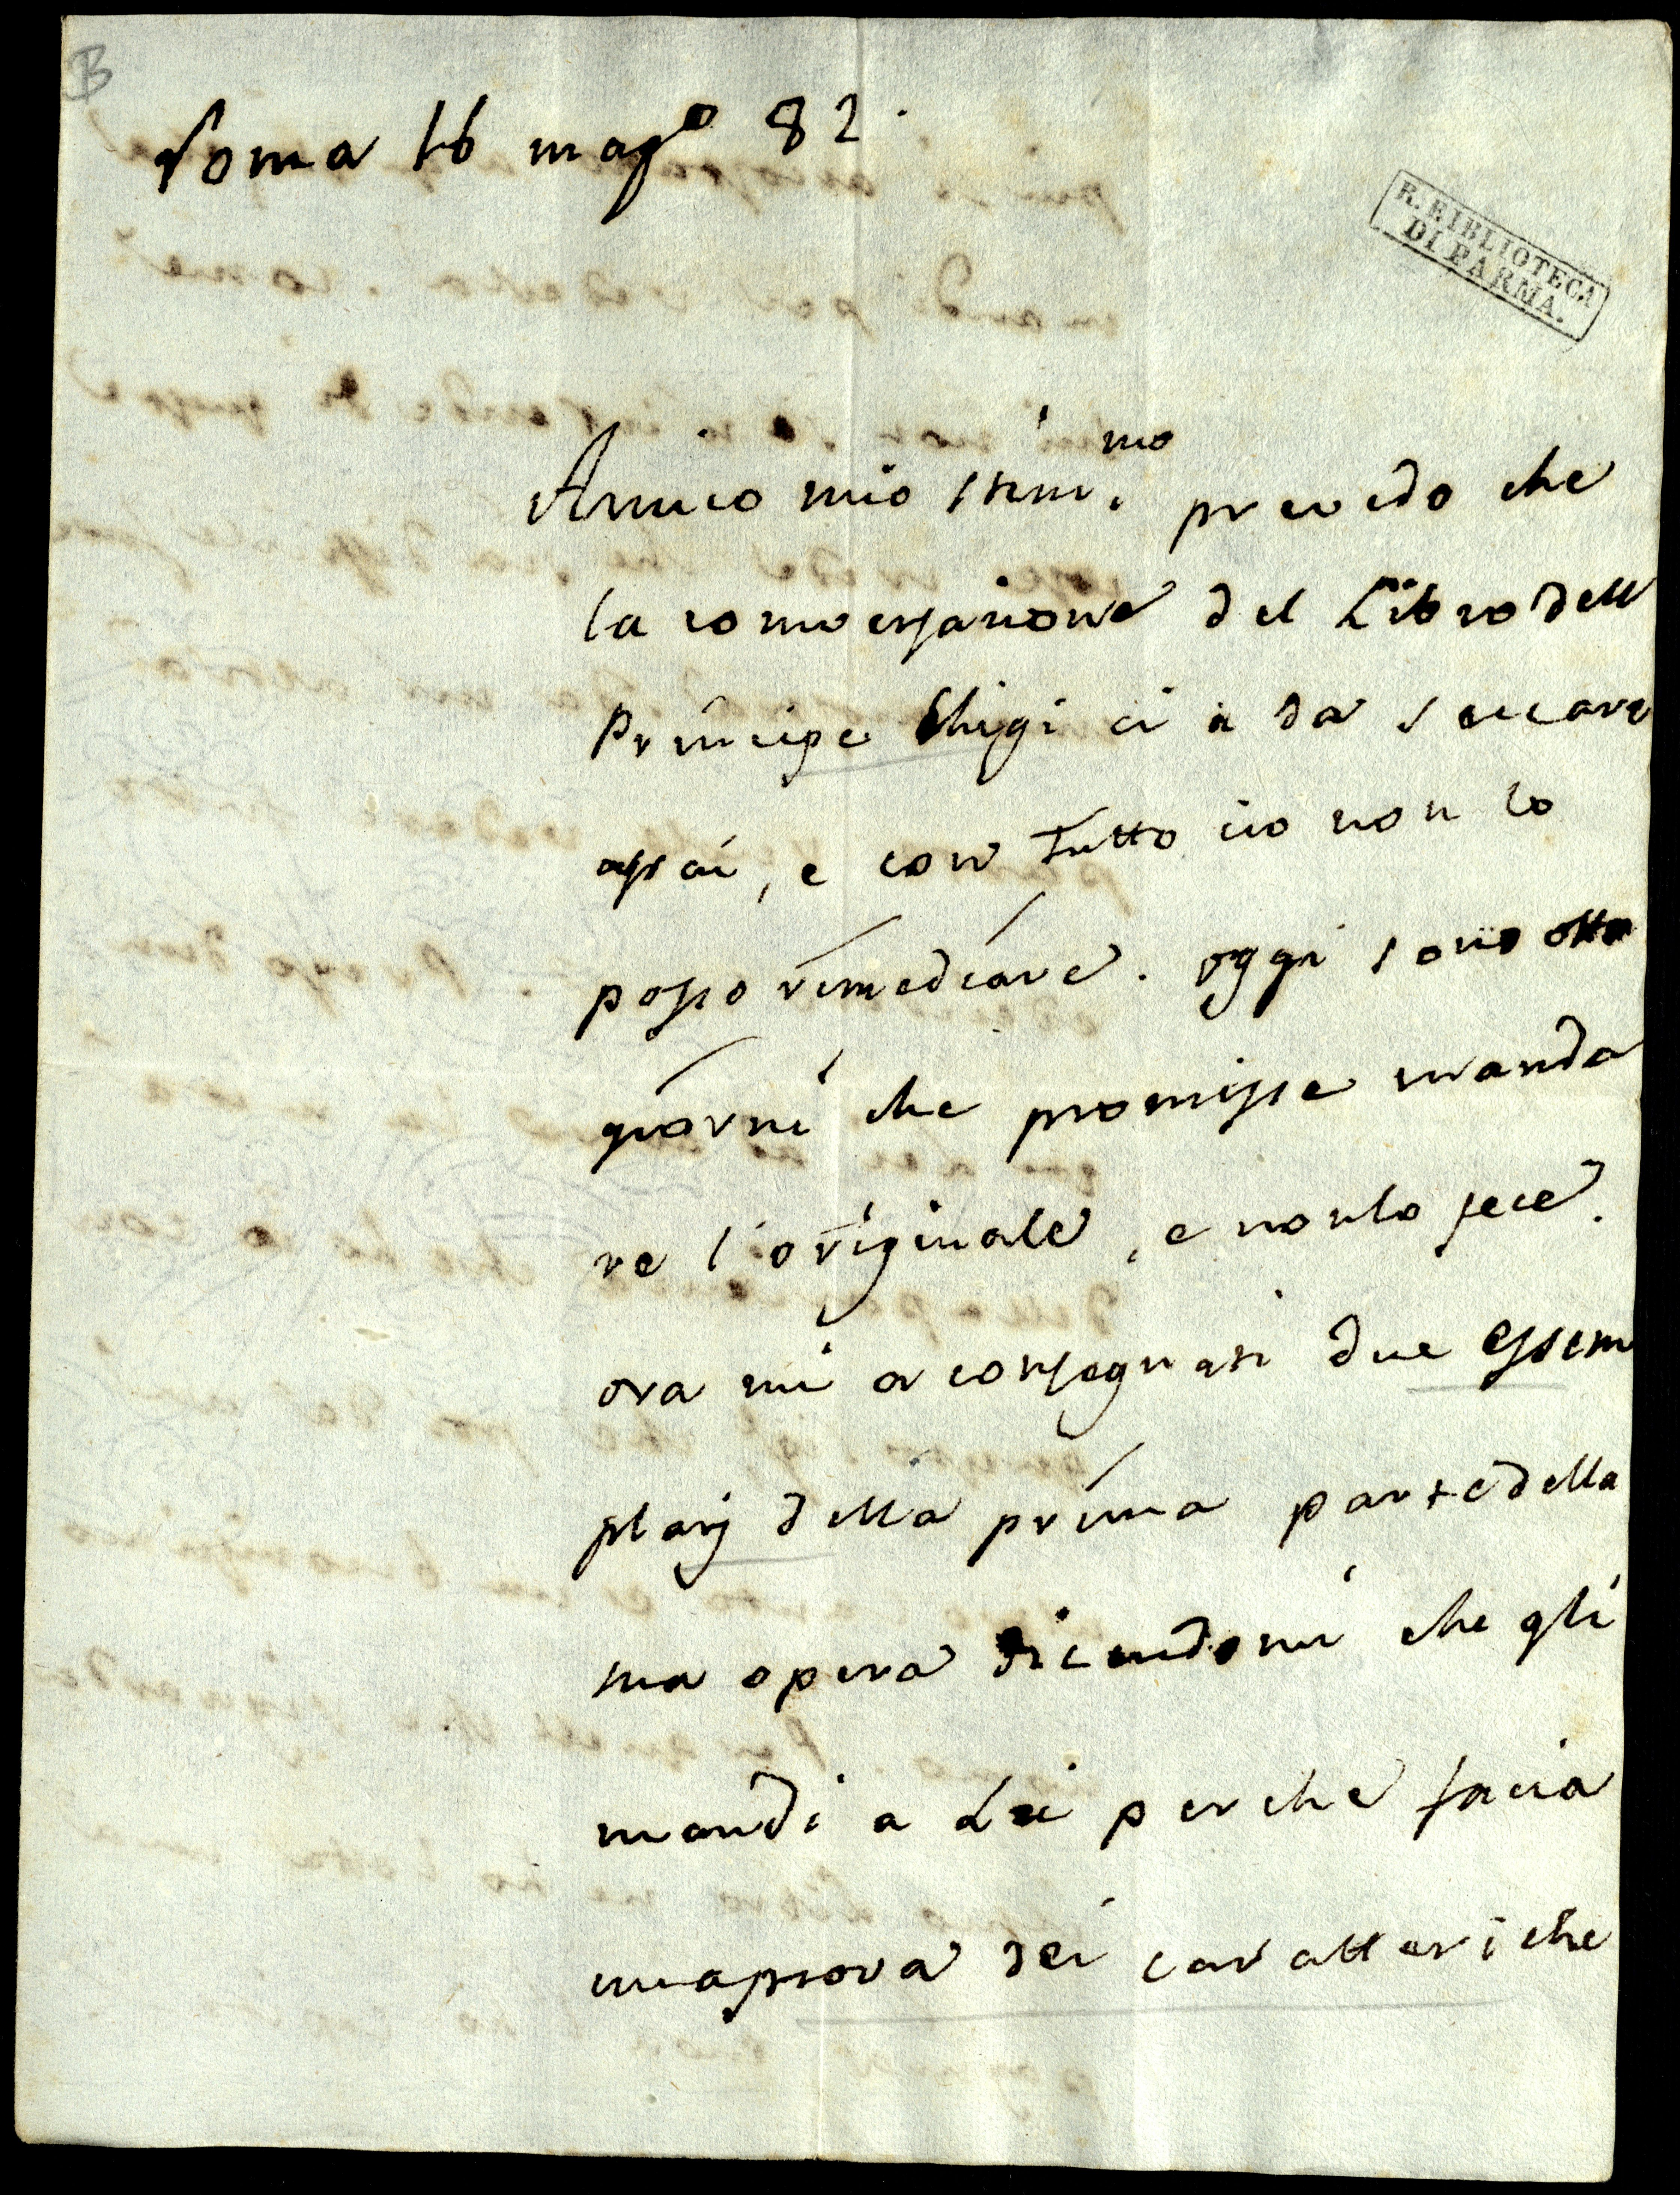 B
Roma 16 magº 82.
R. BIBLIOTECA
DI PARMA.
Amico mio stim.mo prevedo che
la conversazione del Libro dell
Principe Chigi ci a da seccare
assai, e con tutto cio non lo
posso rimediare. oggi sono otto
giorni che promisse manda
re l'originale, e non lo fece.
ora mi a consegnati due essem
plarj della prima parte della
sua opera dicendomi che gli
mandi a Lei perche facia
una prova dei caratteri che